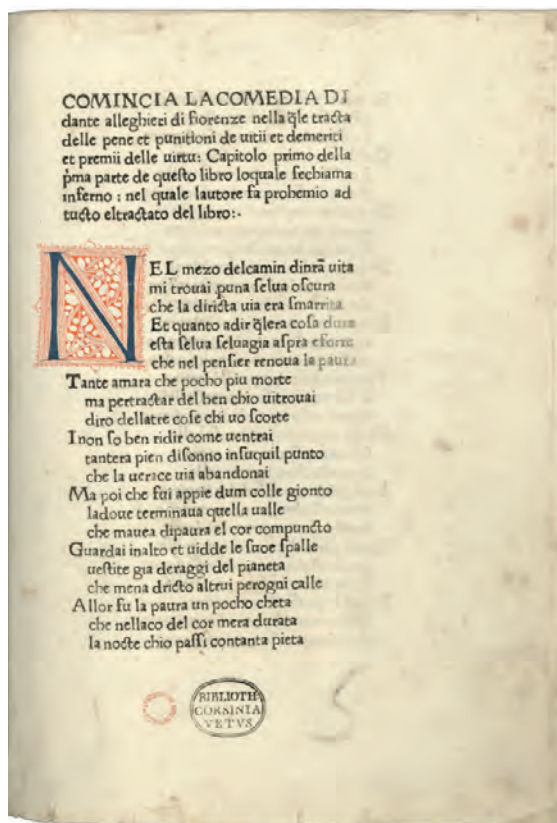 COMINCIA LACOMEDIA DI
dante alleghieri di fiorenze nella q̃le tracta
delle pene et punitioni de uitii et demeriti
et premii delle uirtu: Capitolo primo della
p̃ma parte de queſto libro loquale ſechiama
inferno : nel quale lautore fa prohemio ad
tucto eltractato del libro:·
NEL mezo delcamin dinr̃a uita
mi trouai ꝑuna ſelua oſcura
che la diricta uia era ſmarrita
Et quanto adir q̃lera coſa dura
eſta ſelua ſeluagia aſpra eforte
che nel penſier renoua la paura
Tante amara che pocho piu morte
ma pertractar del ben chio uitrouai
diro dellatre coſe chi uo ſcorte
I non ſo ben ridir come uentrai
tantera pien diſonno inſuquil punto
che la uerace uia abandonai
Ma poi che fui appie dum colle gionto
ladoue terminaua quella ualle
che mauea dipaura el cor compuncto
Guardai inalto et uidde le ſuoe ſpalle
ueſtite gia deraggi del pianeta
che mena dricto altrui perogni calle
Allor fu la paura un pocho cheta
che nellaco del cor mera durata
la nocte chio paſſi contanta pieta
BIBLIOTH
CORSINIA
VETVS